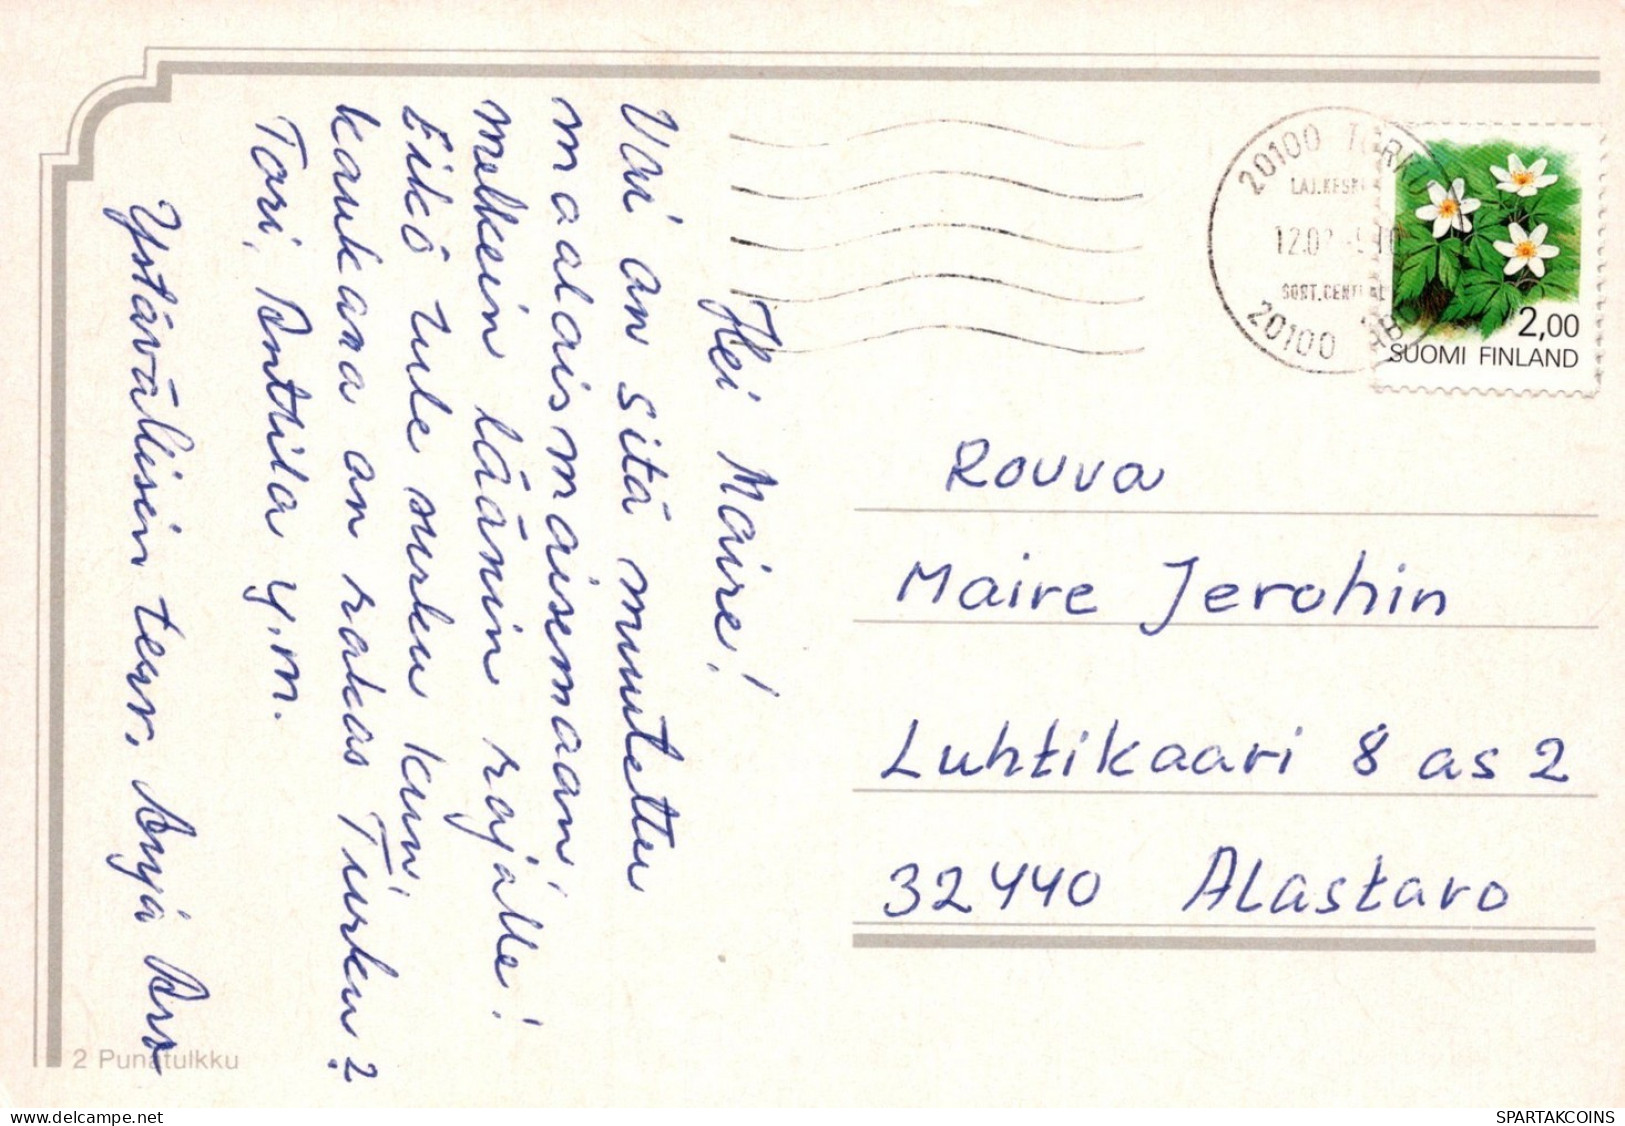 Hei Maire!
Vai on sitä muutettu
maalaismaisemaan,
melkein läänin rajalle!
Eikö tule surku kun,
kaukana on rakas Turku?
Tori, Anttila y.m.
Ystävällisin terv. Anja
2 Punatulkku
20100 TURKU
LAJ.KESK
12.0
SORT.CENTRAL
20100 ÅBO
2,00
SUOMI FINLAND
Rouva
Maire Jerohin
Luhtikaari 8 as 2
32440 Alastaro
www.delcampe.net
SPARTAKCOINS